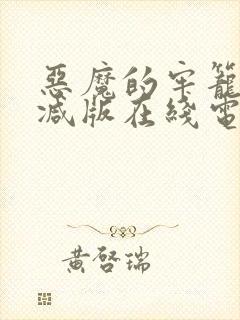 惡魔的牢籠
減版在綫電
黃啓瑞